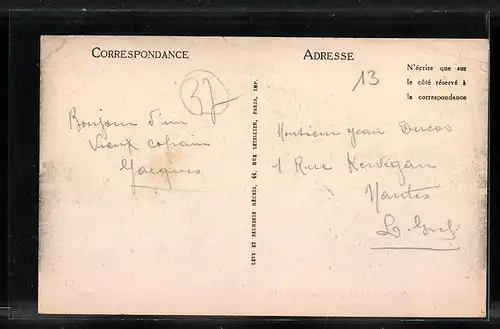 CORRESPONDANCE
37
Bonjour d'un
Vieux copain
Jacques
LÉVY ET NEURDEIN RÉUNIS, 44, RUE LETELLIER, PARIS, IMP.
ADRESSE
13
N'écrire que sur
le côté réservé à
la correspondance
Monsieur Jean Ducos
1 Rue Kervégan
Nantes
L. Inf